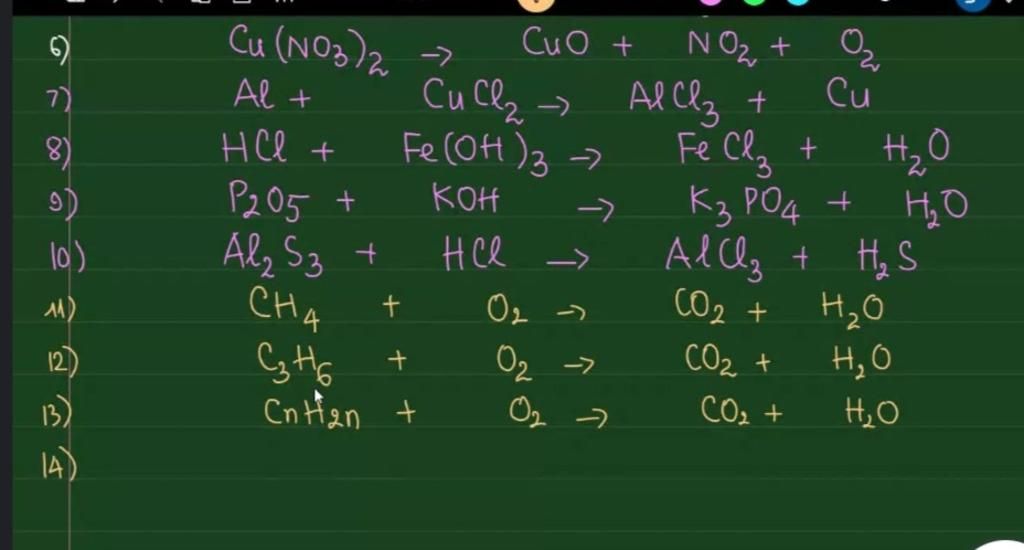 6) Cu(NO3)2 → CuO + NO2 + O2
7) Al + CuCl2 → AlCl3 + Cu
8) HCl + Fe(OH)3 → FeCl3 + H2O
9) P2O5 + KOH → K3PO4 + H2O
10) Al2S3 + HCl → AlCl3 + H2S
11) CH4 + O2 → CO2 + H2O
12) C3H6 + O2 → CO2 + H2O
13) CnH2n + O2 → CO2 + H2O
14)